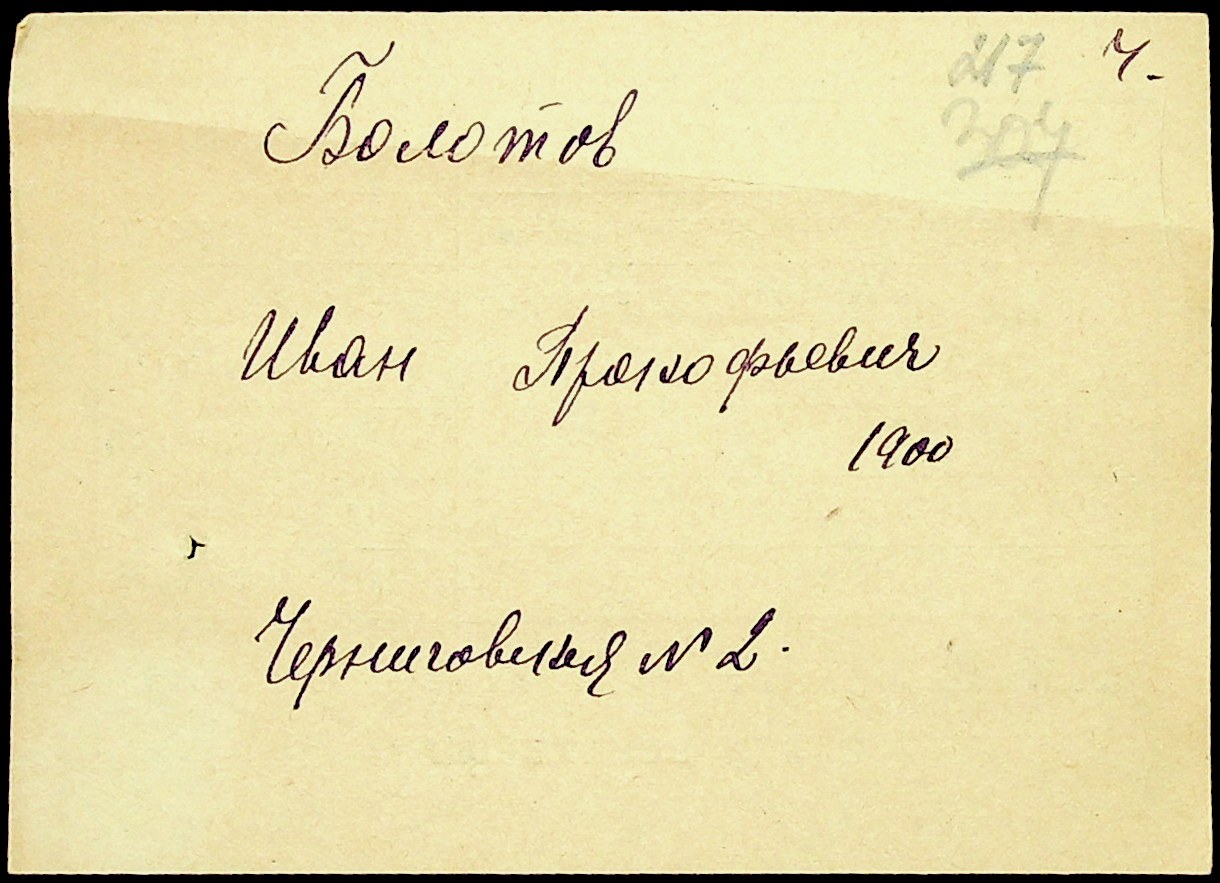 217 Ч.
Болотов
Иван Прокофьевич
1900
Черниговская № 2.